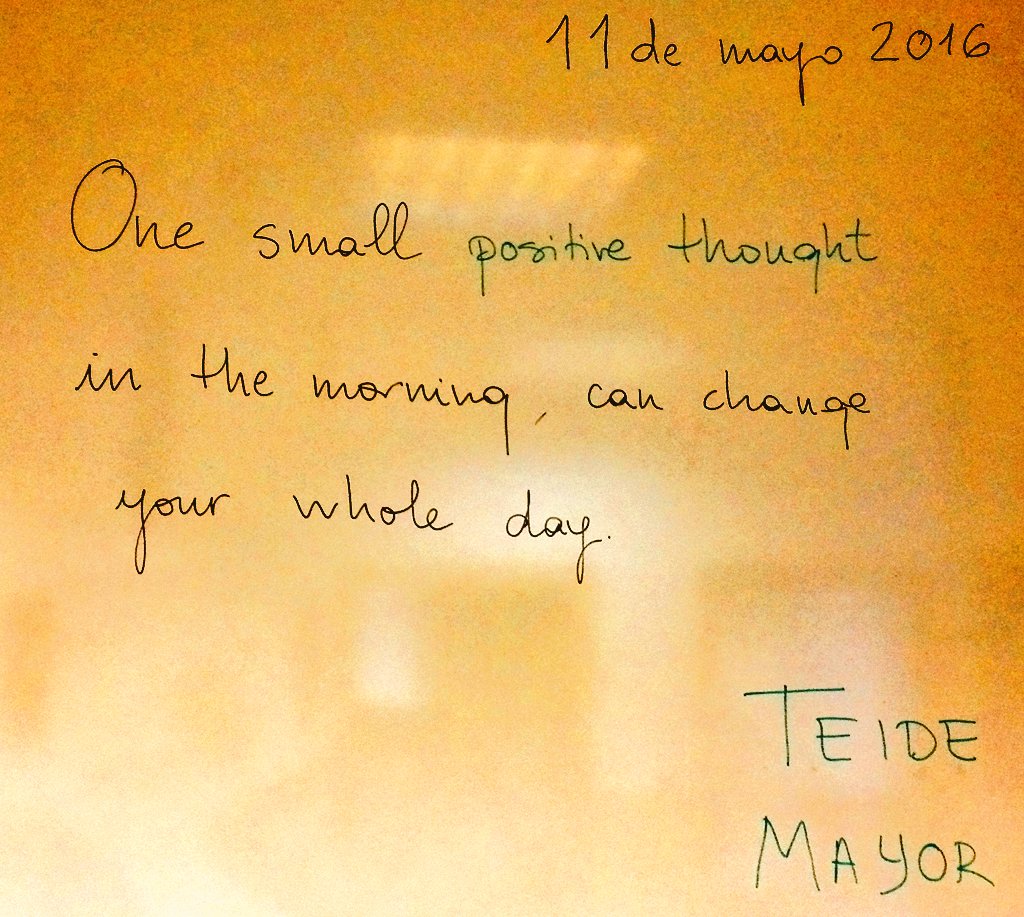 11 de mayo 2016
One small positive thought
in the morning, can change
your whole day.
TEIDE
MAYOR